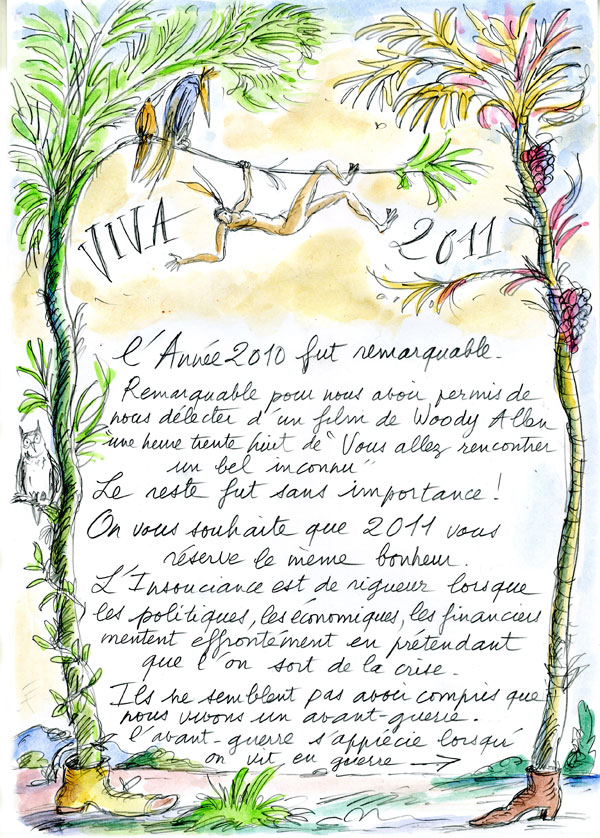 VIVA 2011
l'Année 2010 fut remarquable.
Remarquable pour nous avoir permis de
nous délecter d'un film de Woody Allan
une heure trente huit de "Vous allez rencontrer
un bel inconnu"
Le reste fut sans importance !
On vous souhaite que 2011 vous
réserve le même bonheur.
L'Insouciance est de rigueur lorsque
les politiques, les économiques, les financiers
mentent effrontément en prétendant
que l'on sort de la crise.
Ils ne semblent pas avoir compris que
nous vivons un avant-guerre.
l'avant-guerre s'apprécie lorsqu'
on vit en guerre →